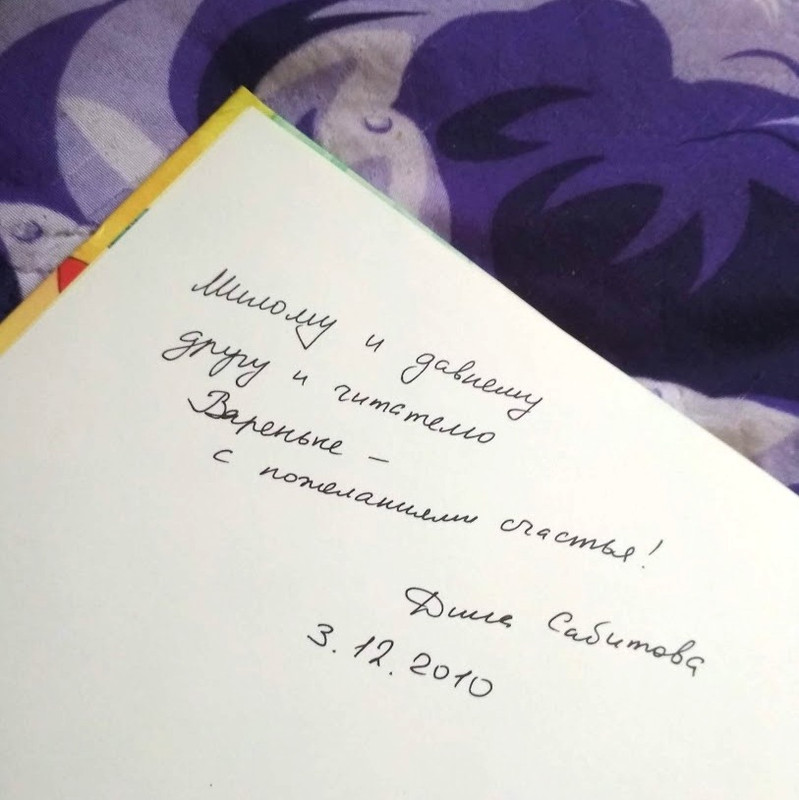 Милому и давнему
другу и читателю
Вареньке –
с пожеланиями счастья!
Дина Сабитова
3.12.2010